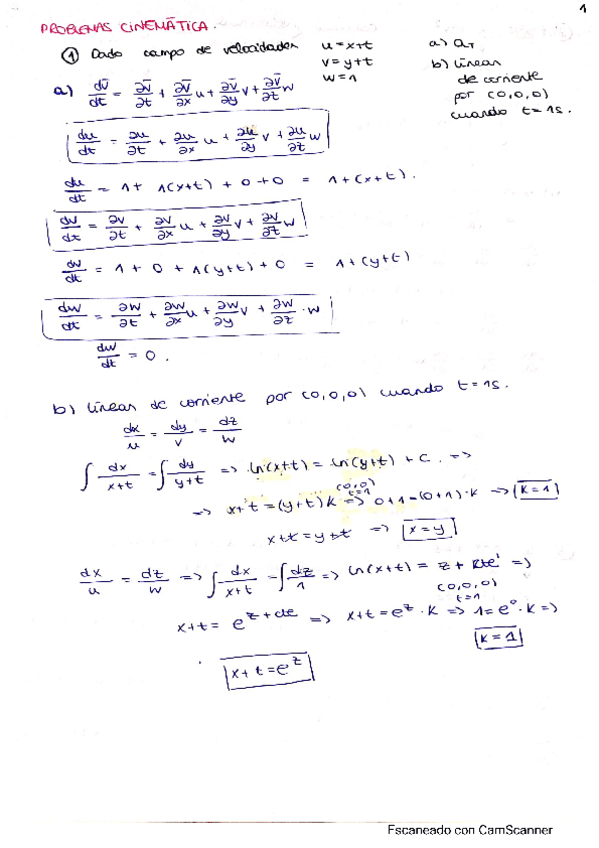 1
PROBLEMAS CINEMÁTICA.
① Dado campo de velocidades u = x+t
v = y+t
w = 1
a) a_T
b) líneas
de corriente
por (0,0,0)
cuando t = 1s.
a) dv̄/dt = ∂v̄/∂t + ∂v̄/∂x u + ∂v̄/∂y v + ∂v̄/∂z w
du/dt = ∂u/∂t + ∂u/∂x u + ∂u/∂y v + ∂u/∂z w
du/dt = 1 + 1(x+t) + 0 + 0 = 1+(x+t).
dv/dt = ∂v/∂t + ∂v/∂x u + ∂v/∂y v + ∂v/∂z w
dv/dt = 1 + 0 + 1(y+t) + 0 = 1+(y+t)
dw/dt = ∂w/∂t + ∂w/∂x u + ∂w/∂y v + ∂w/∂z · w
dw/dt = 0.
b) líneas de corriente por (0,0,0) cuando t = 1s.
dx/u = dy/v = dz/w
∫ dx/x+t = ∫ dy/y+t => ln(x+t) = ln(y+t) + C. =>
(0,0)
t=1
=> x+t = (y+t)K => 0+1 = (0+1)·K => K=1
x+t = y+t => x=y
dx/u = dz/w => ∫ dx/x+t = ∫ dz/1 => ln(x+t) = z + cte =>
(0,0,0)
t=1
x+t = e^(z+cte) => x+t = e^z · K => 1 = e^0 · K =>
K=1
x+t = e^z
Escaneado con CamScanner